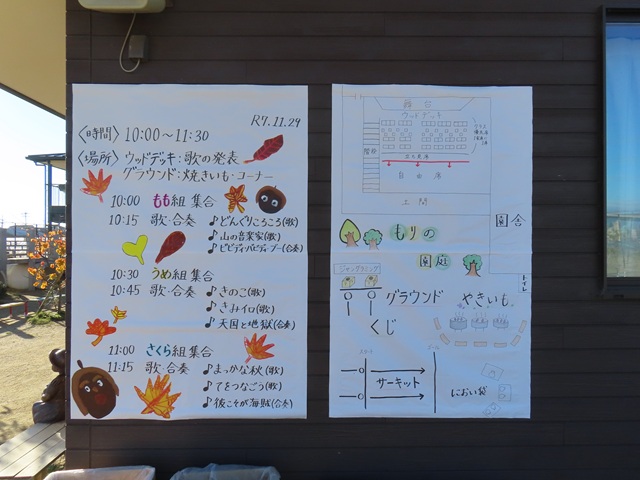 R7.11.29
〈時間〉 10:00〜11:30
〈場所〉 ウッドデッキ:歌の発表
グラウンド:焼きいも・コーナー
10:00 もも組 集合
10:15 歌・合奏 ♪どんぐりころころ(歌)
♪山の音楽家(歌)
♪ビビディ・バビディ・ブー(合奏)
10:30 うめ組 集合
10:45 歌・合奏 ♪きのこ(歌)
♪きみイロ(歌)
♪天国と地獄(合奏)
11:00 さくら組 集合
11:15 歌・合奏 ♪まっかな秋(歌)
♪てをつなごう(歌)
♪彼こそが海賊(合奏)
舞台
ウッドデッキ
階段
自由席
土間
園舎
もりの
園庭
トイレ
ジャングルジム
グラウンド
やきいも
くじ
スタート
ゴール
サーキット
におい袋